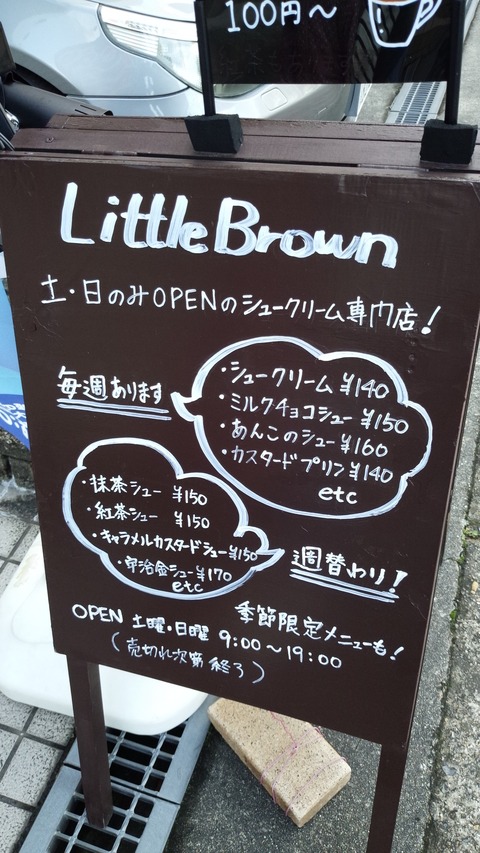 100円～
Little Brown
土・日のみOPENのシュークリーム専門店！
毎週あります
・シュークリーム ¥140
・ミルクチョコシュー ¥150
・あんこのシュー ¥160
・カスタードプリン ¥140
etc
・抹茶シュー ¥150
・紅茶シュー ¥150
・キャラメルカスタードシュー ¥150
・宇治金シュー ¥170
etc
週替わり！
季節限定メニューも！
OPEN 土曜・日曜 9:00～19:00
(売切れ次第終了)